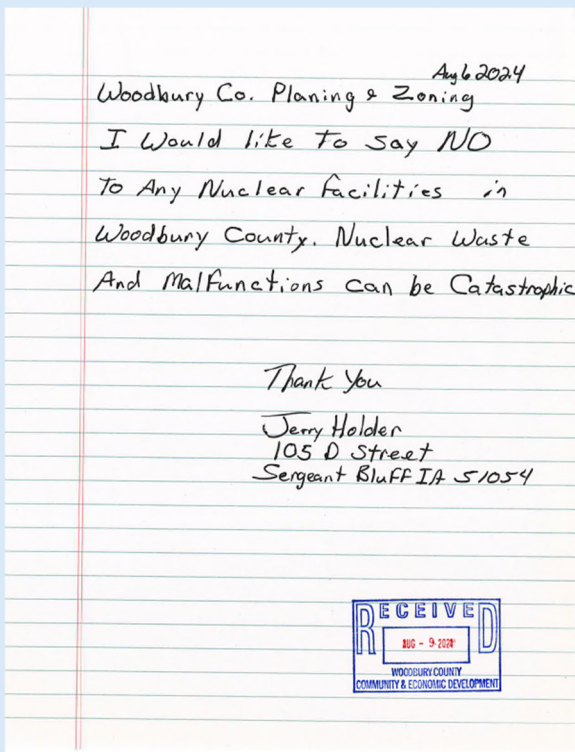 Aug 6 2024
Woodbury Co. Planing & Zoning
I Would like To Say NO
To Any Nuclear Facilities in
Woodbury County. Nuclear Waste
And Malfunctions can be Catastrophic
Thank You
Jerry Holder
105 D Street
Sergeant Bluff IA 51054
RECEIVED
AUG - 9 2024
WOODBURY COUNTY
COMMUNITY & ECONOMIC DEVELOPMENT